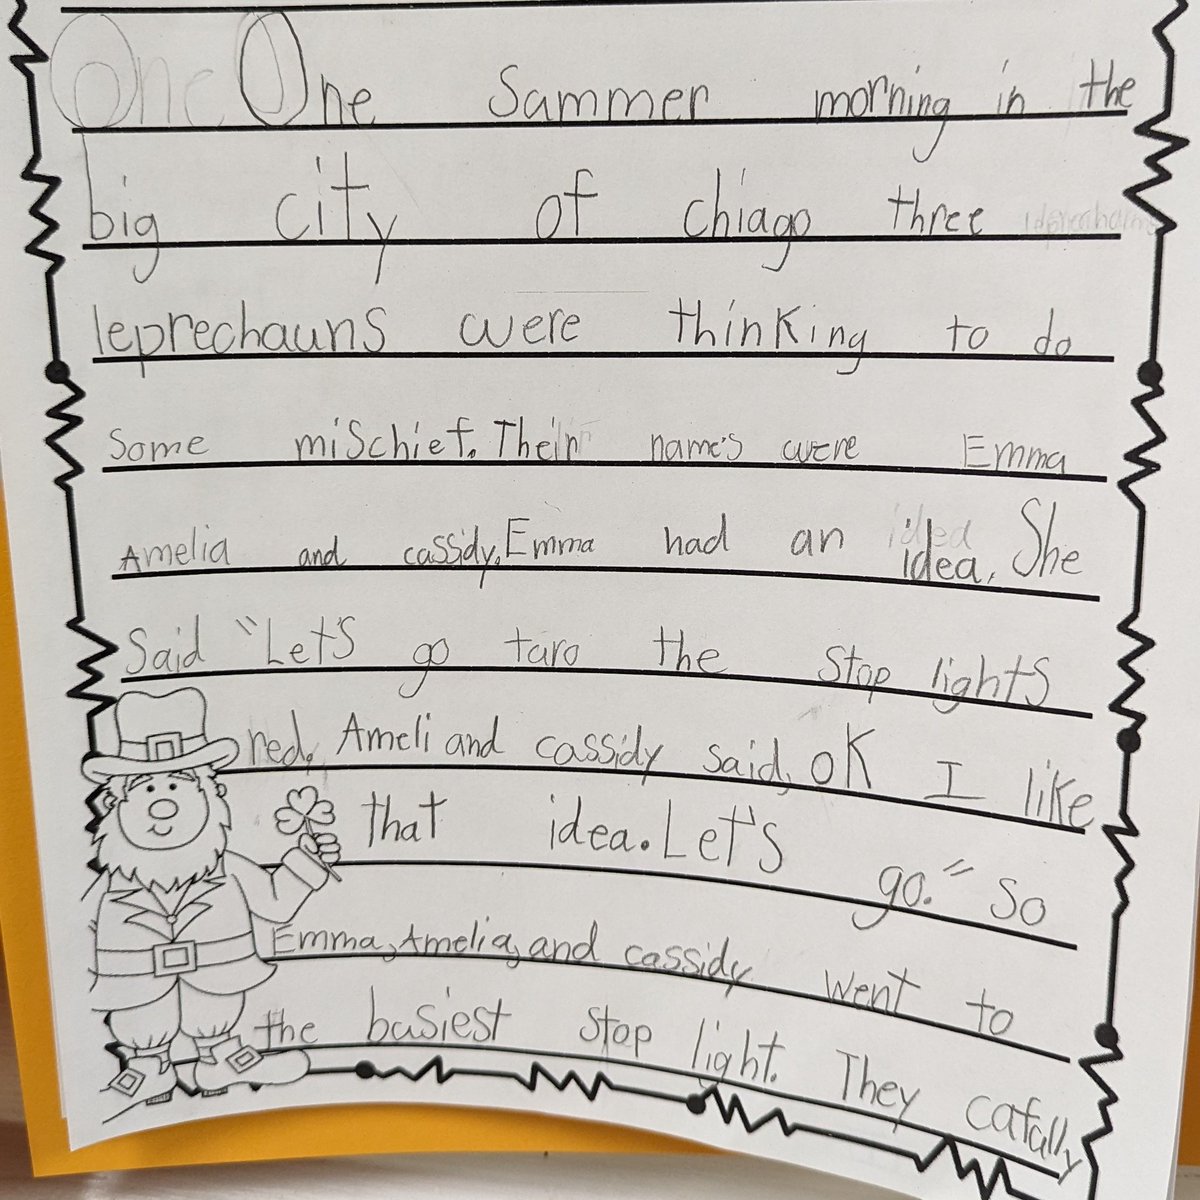 One One Sammer morning in the
big city of chiago three leprechauns
leprechauns were thinking to do
Some mischief. Their name's were Emma
Amelia and cassidy. Emma had an idea idea. She
Said "Let's go taro the Stop lights
red. Ameli and cassidy said, ok I like
that idea. Let's go." so
Emma, Amelia, and cassidy went to
the basiest stop light. They cafally